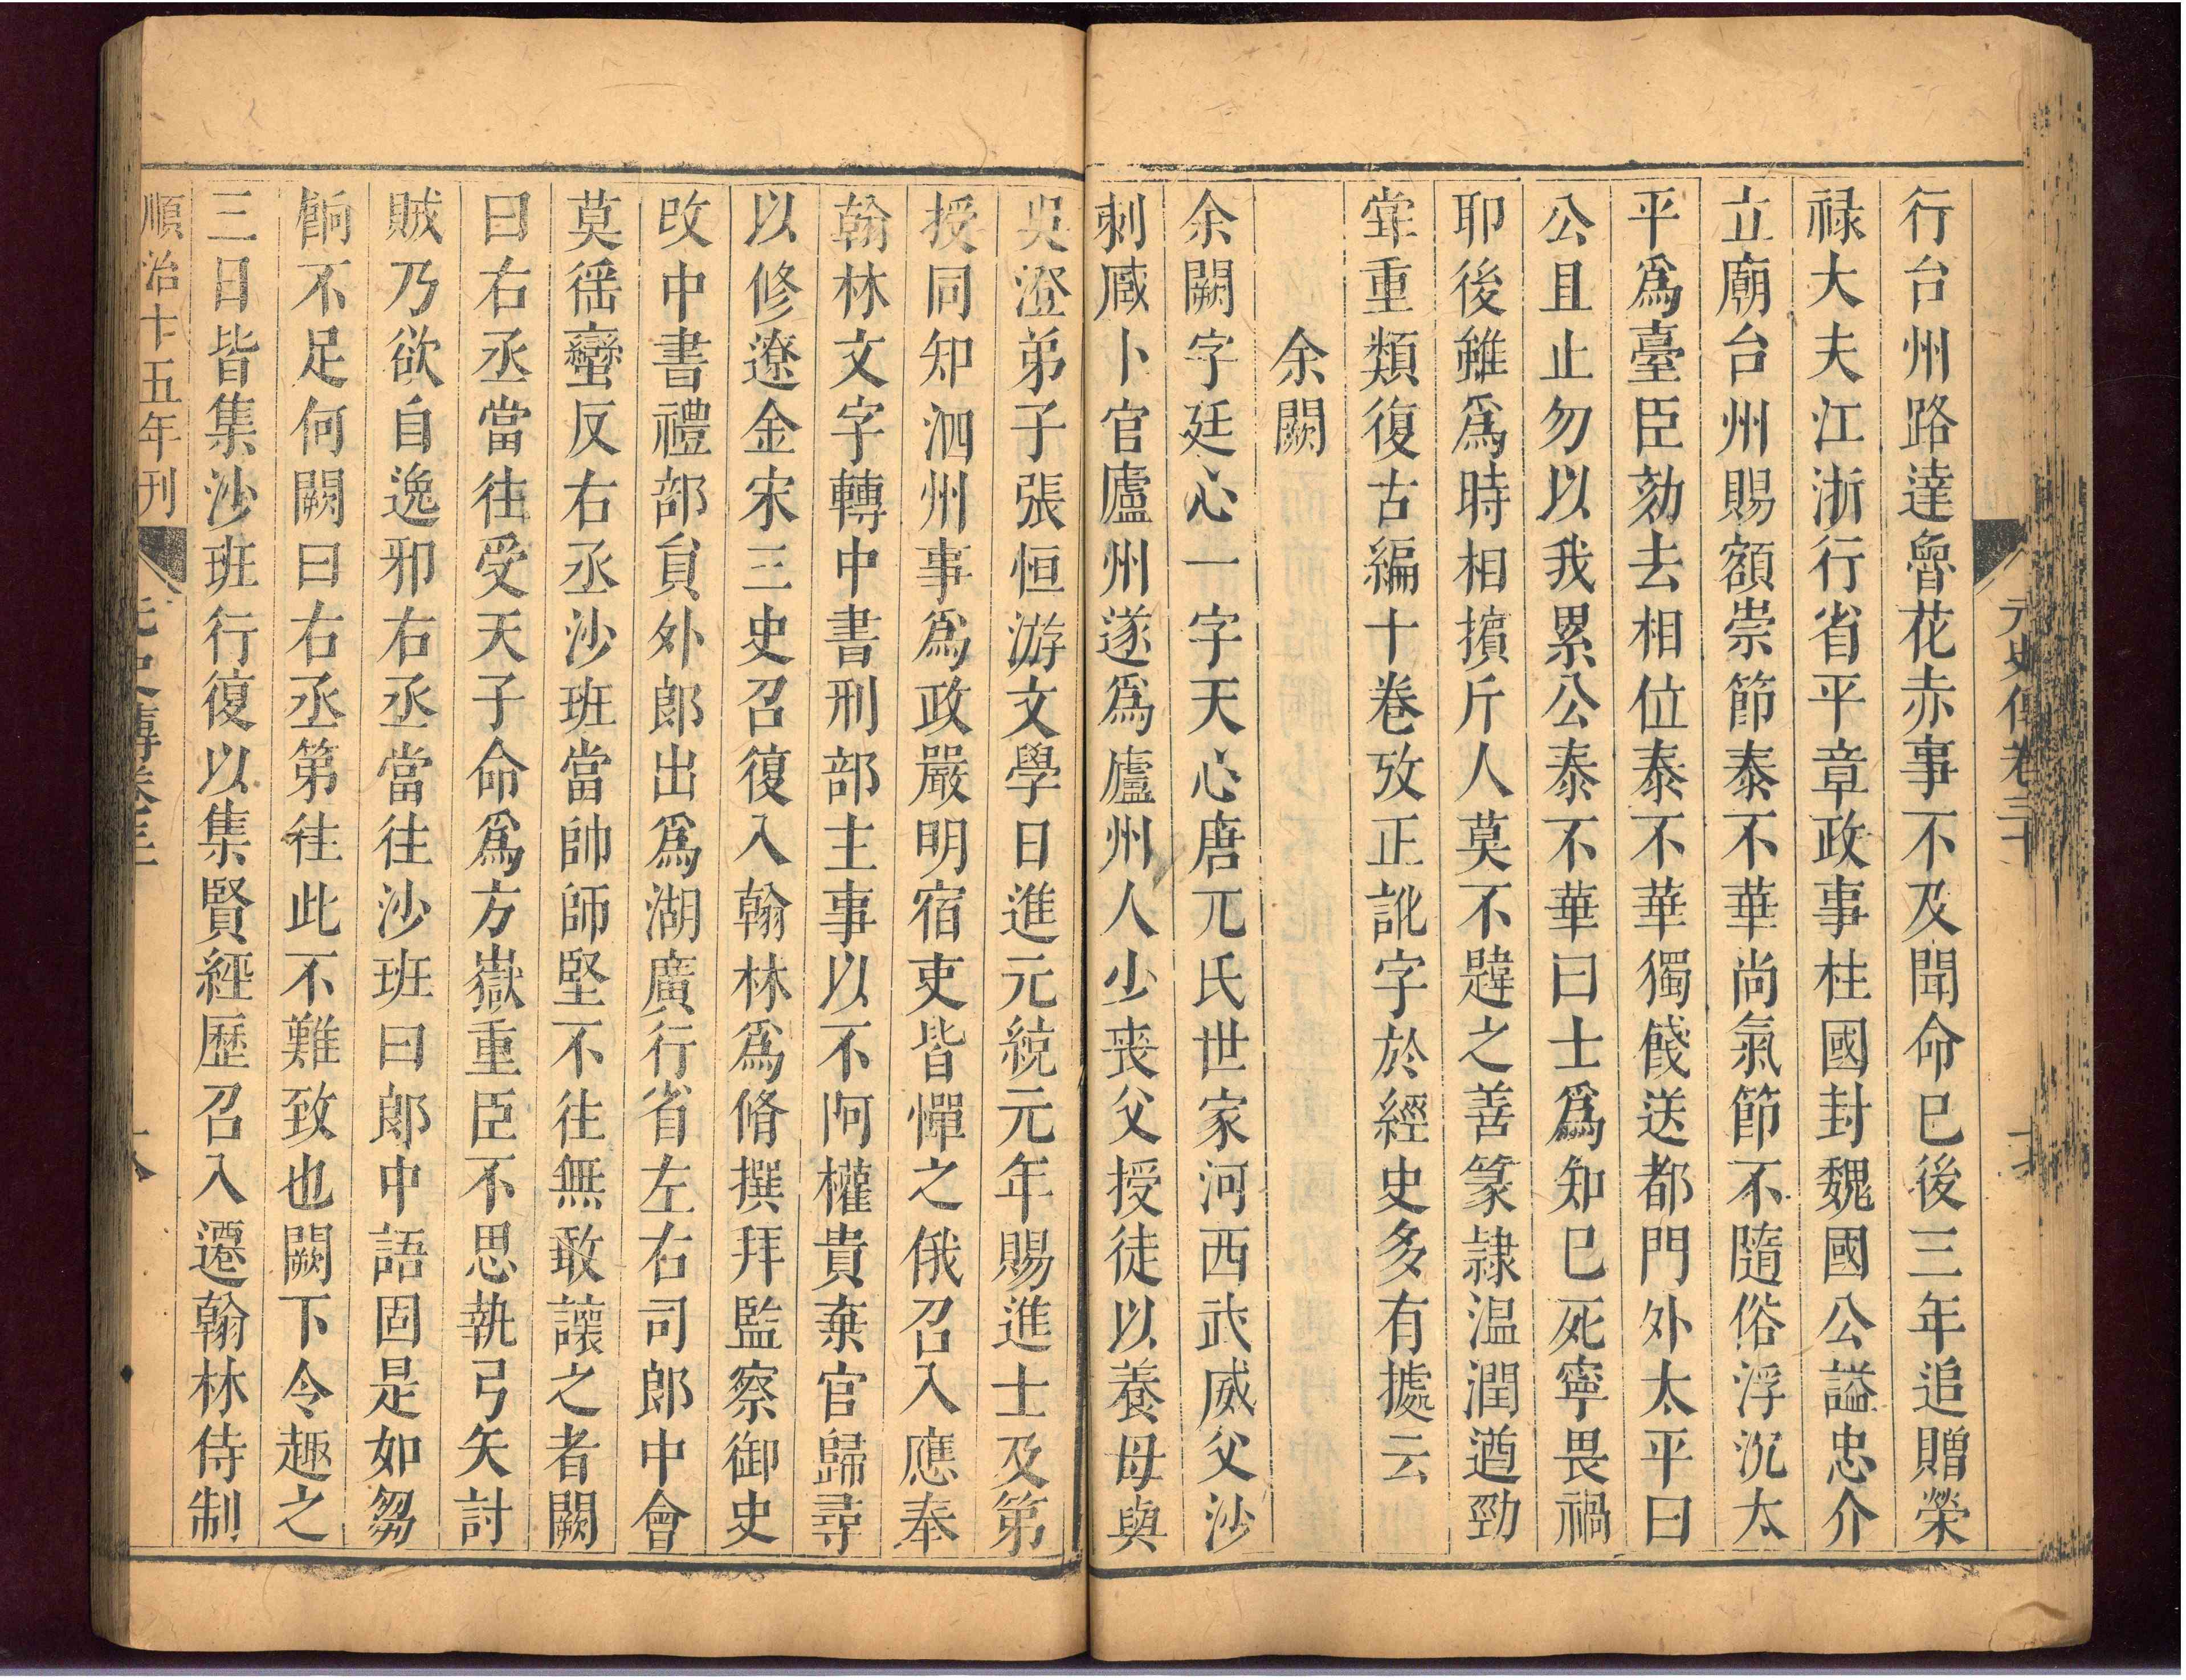 元史傳卷三十
十七
行台州路達魯花赤事不及聞命巳後三年追贈榮
禄大夫江浙行省平章政事柱國封魏國公謚忠介
立廟台州賜額崇節泰不華尚氣節不隨俗浮沉太
平爲臺臣劾去相位泰不華獨餞送都門外太平曰
公且止勿以我累公泰不華曰士爲知巳死寧畏禍
耶後雖爲時相擯斥人莫不韙之善篆隷温潤遒勁
甞重類復古編十卷攷正訛字於經史多有據云
余闕
余闕字廷心一字天心唐兀氏世家河西武威父沙
剌臧卜官廬州遂爲廬州人少丧父授徒以養母與
吳澄弟子張恒游文學日進元統元年賜進士及第
授同知泗州事爲政嚴明宿吏皆憚之俄召入應奉
翰林文字轉中書刑部主事以不阿權貴棄官歸尋
以修遼金宋三史召復入翰林爲脩撰拜監察御史
改中書禮部員外郎出爲湖廣行省左右司郎中會
莫徭蠻反右丞沙班當帥師堅不往無敢讓之者闕
曰右丞當往受天子命爲方嶽重臣不思執弓矢討
賊乃欲自逸邪右丞當往沙班曰郎中語固是如芻
餉不足何闕曰右丞第往此不難致也闕下令趣之
三日皆集沙班行復以集賢經歷召入遷翰林侍制
順治十五年刊
元史傳卷三十
十八